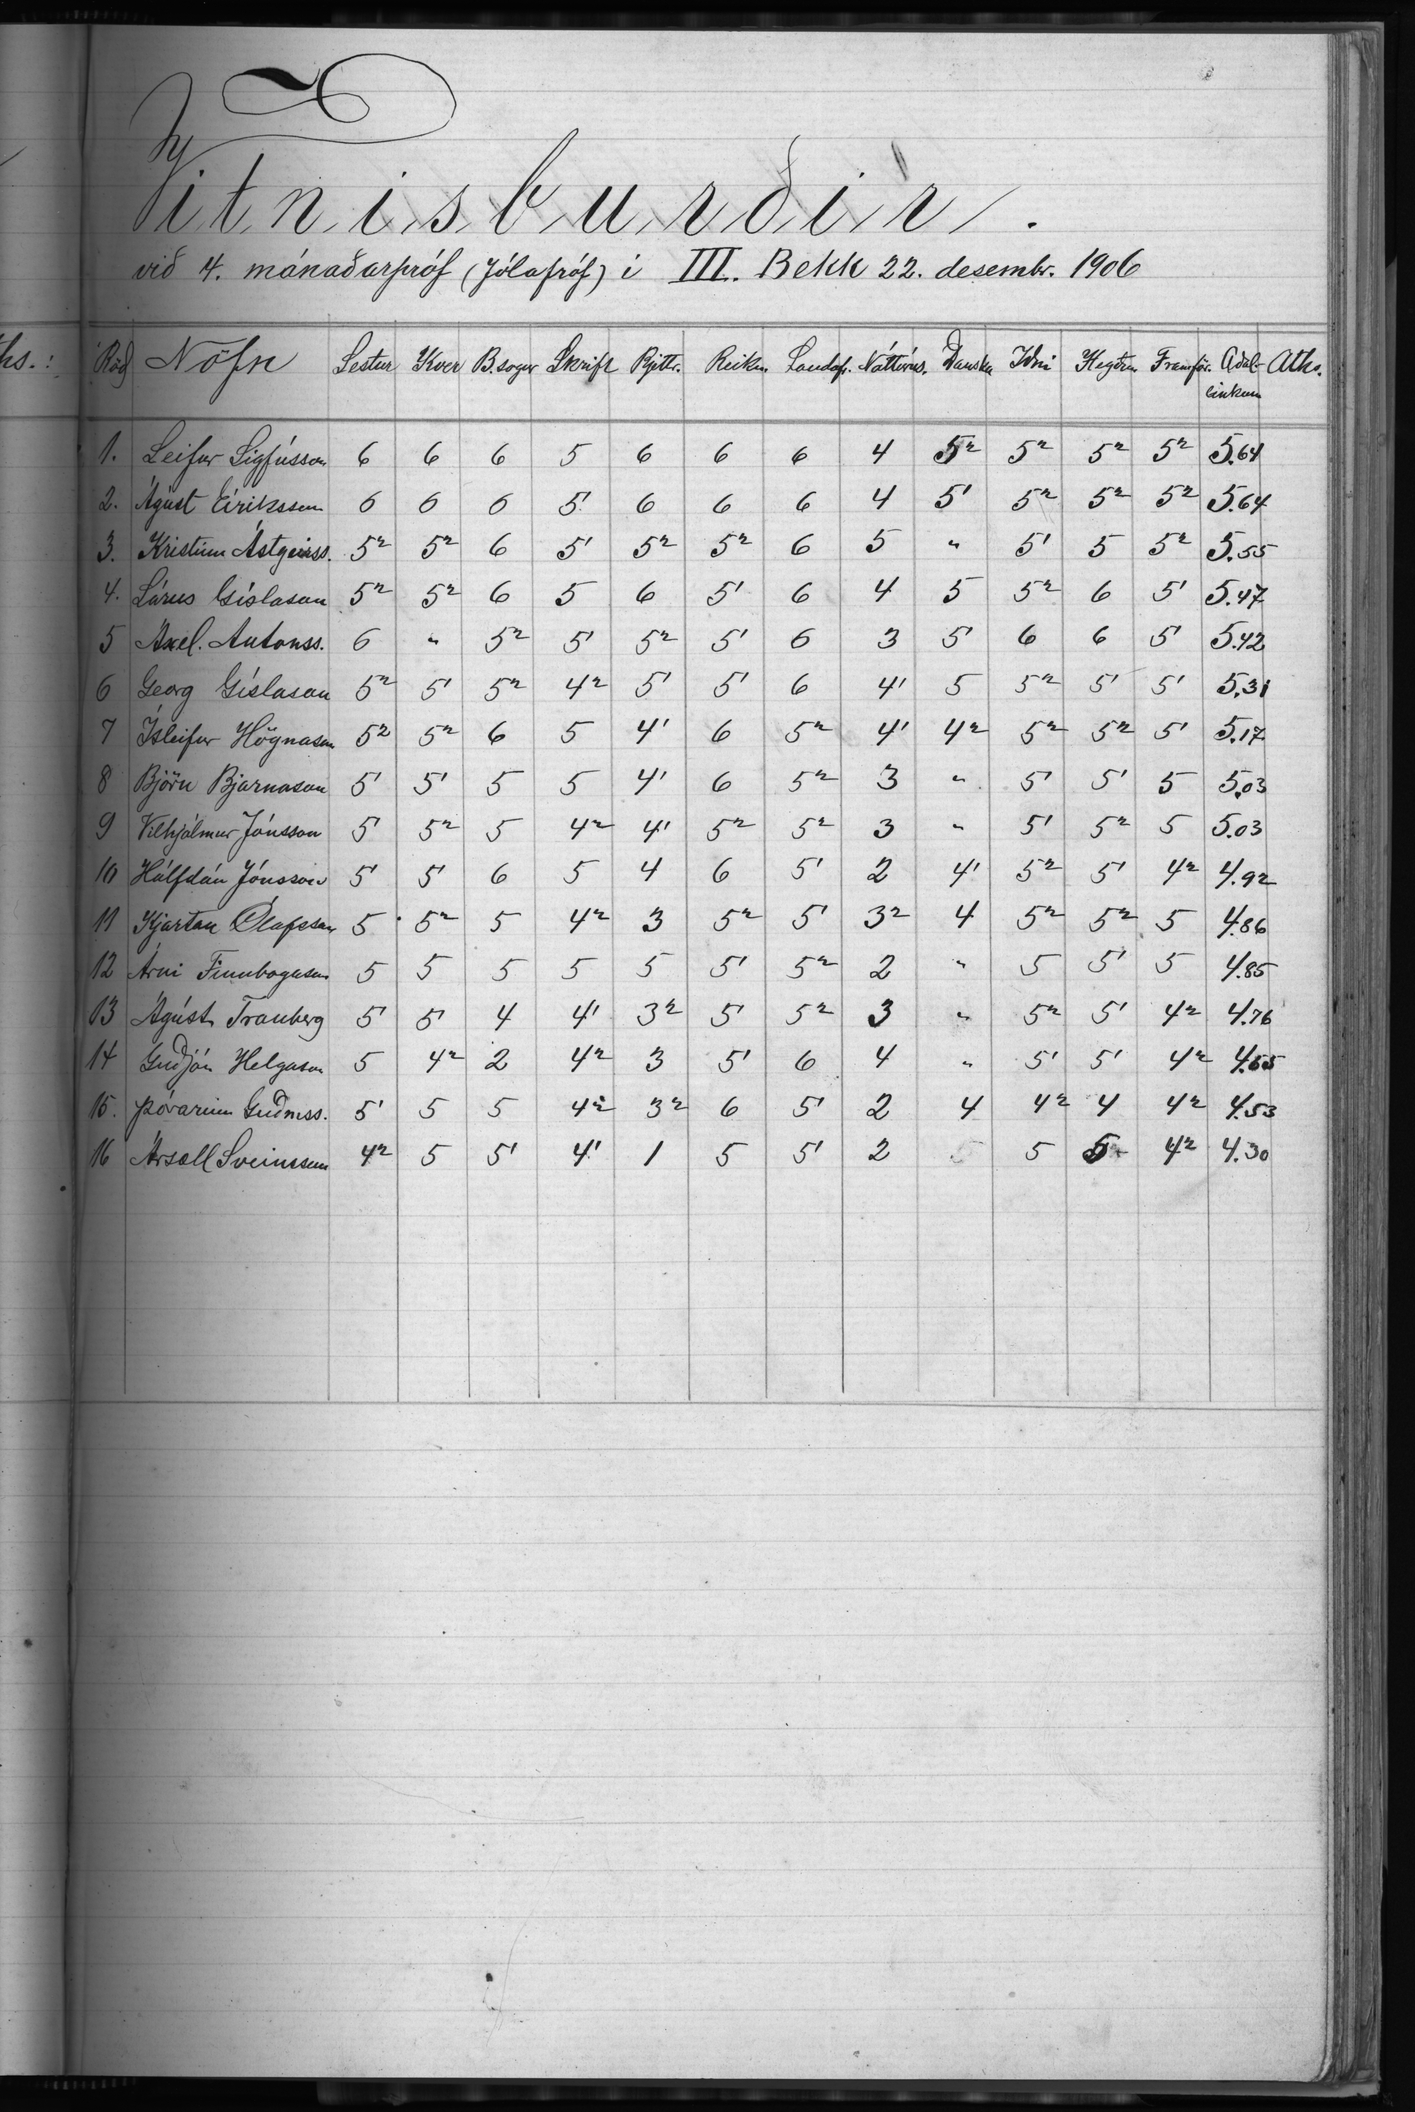 Vitnisburðir.
við 4. mánaðarpróf (Jólapróf) í III. Bekk 22. desembr. 1906
Röð Nöfn Lestur Kver B.sögur Skrift Rjettr. Reikn. Landafr. Náttúrus. Danska Iðni Hegðun Framför. Aðal- Aths.
einkunn
1. Leifur Sigfússon 6 6 6 5 6 6 6 4 5² 5² 5² 5² 5.64
2. Ágúst Eiríksson 6 6 6 5' 6 6 6 4 5' 5² 5² 5² 5.64
3. Kristinn Ástgeirss. 5² 5² 6 5' 5² 5² 6 5 " 5' 5 5² 5.55
4. Lárus Gíslason 5² 5² 6 5 6 5' 6 4 5 5² 6 5' 5.47
5 Axel. Antonss. 6 " 5² 5' 5² 5' 6 3 5' 6 6 5' 5.42
6 Georg Gíslason 5² 5' 5² 4² 5' 5' 6 4' 5 5² 5' 5' 5.31
7 Ísleifur Högnason 5² 5² 6 5 4' 6 5² 4' 4² 5² 5² 5' 5.17
8 Björn Bjarnason 5' 5' 5 5 4' 6 5² 3 " 5' 5' 5 5.03
9 Vilhjálmur Jónsson 5' 5² 5 4² 4' 5² 5² 3 " 5' 5² 5 5.03
10 Hálfdán Jónsson 5' 5' 6 5 4 6 5' 2 4' 5² 5' 4² 4.92
11 Kjartan Ólafsson 5 5² 5 4² 3 5² 5' 3² 4 5² 5² 5 4.86
12 Árni Finnbogason 5 5 5 5 5 5' 5² 2 " 5 5' 5 4.85
13 Ágúst Tranberg 5' 5' 4 4' 3² 5' 5² 3 " 5² 5' 4² 4.76
14 Guðjón Helgason 5 4² 2 4² 3 5' 6 4 " 5' 5' 4² 4.55
15. Þórarinn Guðmss. 5' 5 5 4² 3² 6 5' 2 4 4² 4 4² 4.53
16 Ársæll Sveinsson 4² 5 5' 4' 1 5 5' 2 5 5 4² 4.30